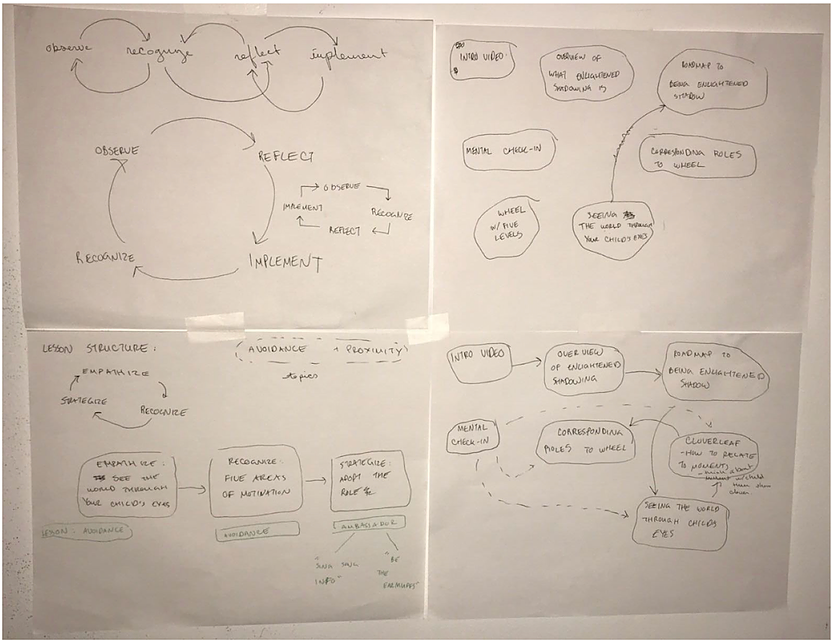 observe recognize reflect implement
OBSERVE
REFLECT
IMPLEMENT
RECOGNIZE
OBSERVE
RECOGNIZE
REFLECT
IMPLEMENT
INTRO VIDEO
OVERVIEW OF
WHAT ENLIGHTENED
SHADOWING IS
ROADMAP TO
BEING ENLIGHTENED
SHADOW
MENTAL CHECK-IN
CORRESPONDING ROLES
TO WHEEL
WHEEL
W/ FIVE
LEVELS
SEEING
THE WORLD THROUGH
YOUR CHILD'S EYES
LESSON STRUCTURE:
EMPATHIZE
RECOGNIZE
STRATEGIZE
AVOIDANCE + PROXIMITY
topics
EMPATHIZE:
SEE THE
WORLD THROUGH
YOUR CHILD'S EYES
RECOGNIZE:
FIVE AREAS
OF MOTIVATION
STRATEGIZE:
ADOPT THE
ROLE
LESSON: AVOIDANCE
AVOIDANCE
AMBASSADOR
"SING SING
INFO"
"BE
THE
INTRO VIDEO
OVERVIEW
OF ENLIGHTENED
SHADOWING
ROADMAP TO
BEING ENLIGHTENED
SHADOW
MENTAL
CHECK-IN
CORRESPONDING
ROLES TO WHEEL
CLOVERLEAF
- HOW TO RELATE
TO MOMENTS
- think about
moment w/child
SEEING THE WORLD
THROUGH CHILD'S
EYES